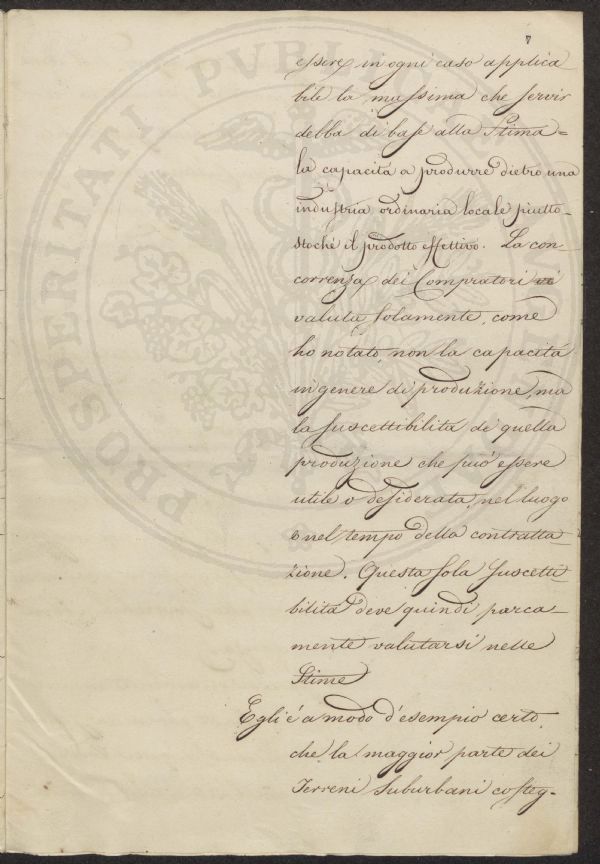 7
essere in ogni caso applica
bile la massima che servir
debba di base alla Stima =
la capacità a produrre dietro una
industria ordinaria locale piutto-
stochè il prodotto effettivo. La con-
correnza dei Compratori
valuta solamente, come
ho notato, non la capacità
in genere di produzione, ma
la suscettibilità di quella
produzione che può essere
utile o desiderata, nel luogo
e nel tempo della contratta-
zione. Questa sola suscetti
bilità deve quindi parca-
mente valutarsi nelle
Stime
Egli é a modo d'esempio certo,
che la maggior parte dei
Terreni Suburbani costeg-
PROSPERITATI PVBLI